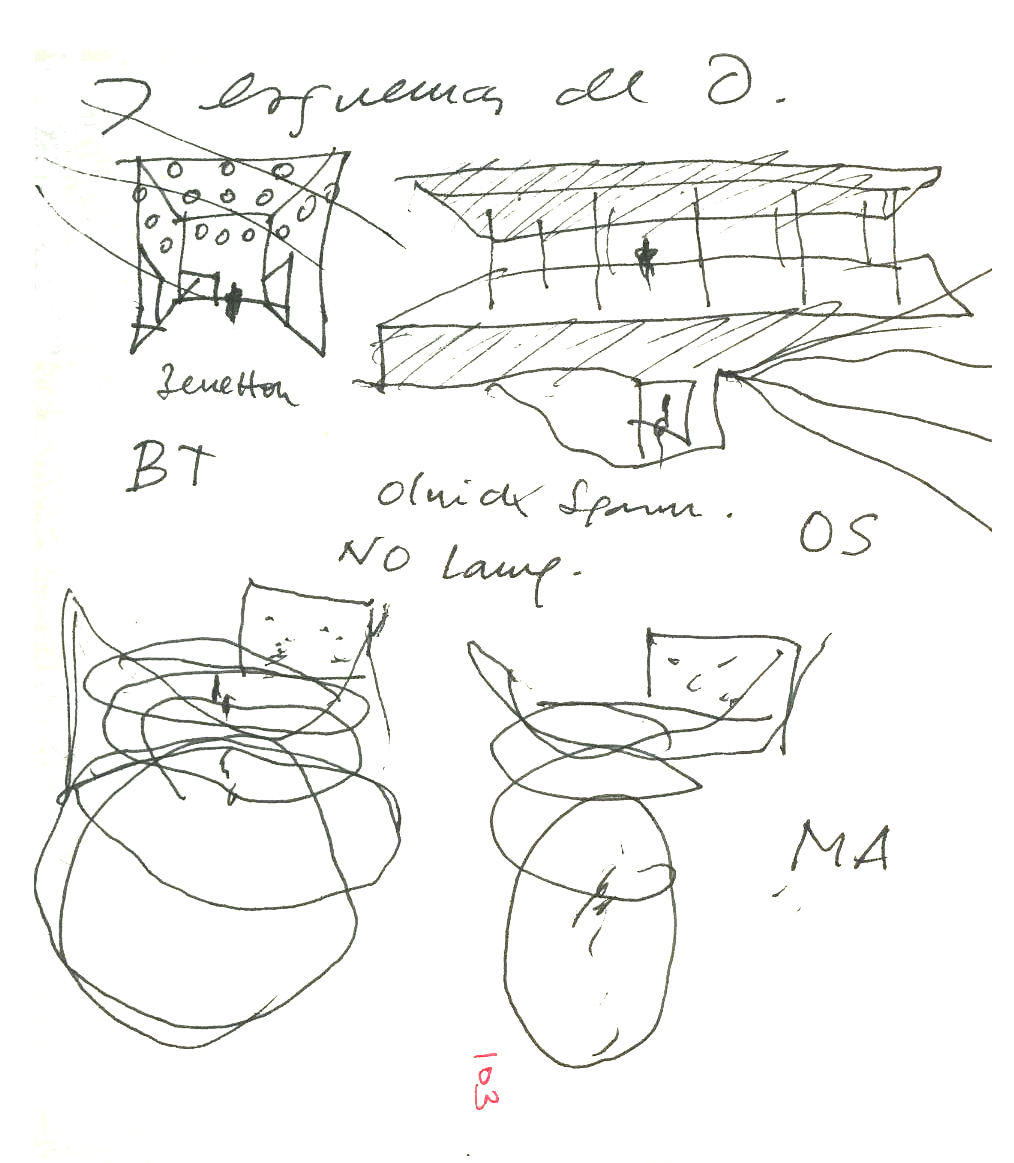 7 esquemas de D.
Benetton
BT
Olnick Spanu.
OS
NO Lamp.
MA
103